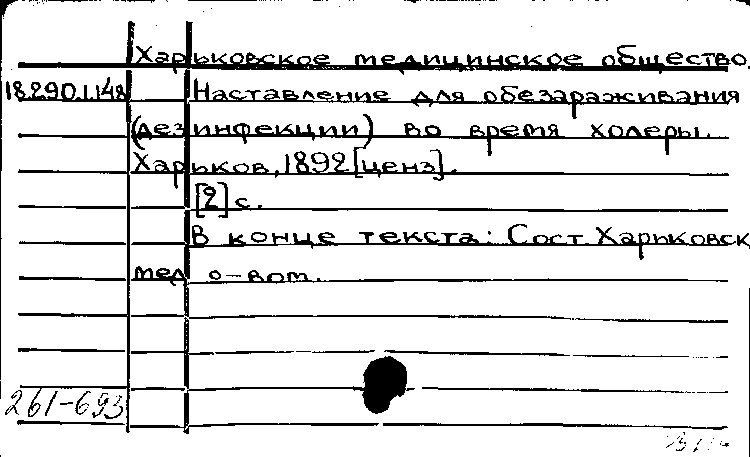 Харьковское медицинское общество.
18.290.1.148 Наставление для обезараживания
(дезинфекции) во время холеры.
Харьков, 1892 [ценз].
[2] с.
В конце текста: Сост. Харьковск
мед о-вом.
261-693